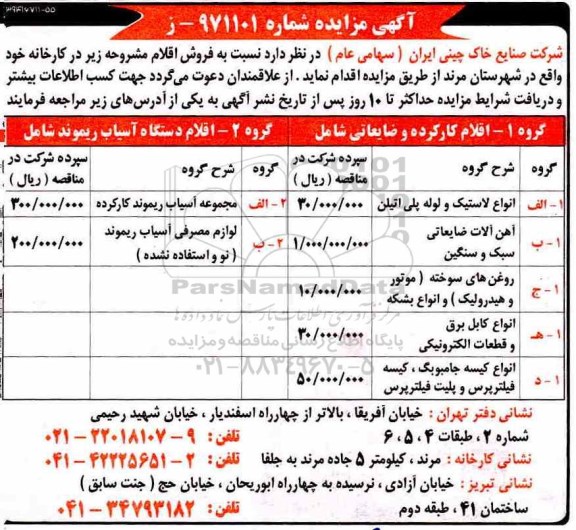 ۳۹۴۱۷۷۱۱-۵۵
آگهی مزایده شماره ۹۷۱۱۰۱ - ز
شرکت صنایع خاک چینی ایران ( سهامی عام ) در نظر دارد نسبت به فروش اقلام مشروحه زیر در کارخانه خود
واقع در شهرستان مرند از طریق مزایده اقدام نماید . از علاقمندان دعوت می‌گردد جهت کسب اطلاعات بیشتر
و دریافت شرایط مزایده حداکثر تا ۱۰ روز پس از تاریخ نشر آگهی به یکی از آدرس‌های زیر مراجعه فرمایند
گروه ۱ - اقلام کارکرده و ضایعاتی شامل
گروه
شرح گروه
سپرده شرکت در مناقصه ( ریال )
۱ - الف
انواع لاستیک و لوله پلی اتیلن
۳۰/۰۰۰/۰۰۰
۱ - ب
آهن آلات ضایعاتی
سبک و سنگین
۱/۰۰۰/۰۰۰/۰۰۰
۱ - ج
روغن های سوخته ( موتور
و هیدرولیک ) و انواع بشکه
۱۰/۰۰۰/۰۰۰
۱ - هـ
انواع کابل برق
و قطعات الکترونیکی
۳۰/۰۰۰/۰۰۰
۱ - د
انواع کیسه جامبوبگ ، کیسه
فیلترپرس و پلیت فیلترپرس
۵۰/۰۰۰/۰۰۰
گروه ۲ - اقلام دستگاه آسیاب ریموند شامل
گروه
شرح گروه
سپرده شرکت در مناقصه ( ریال )
۲ - الف
مجموعه آسیاب ریموند کارکرده
۳۰۰/۰۰۰/۰۰۰
۲ - ب
لوازم مصرفی آسیاب ریموند
( نو و استفاده نشده )
۲۰۰/۰۰۰/۰۰۰
ParsNamadData
پایگاه اطلاع رسانی مناقصه و مزایده
۰۲۱-۸۸۳۴۹۶۷۰-۵
نشانی دفتر تهران : خیابان آفریقا ، بالاتر از چهارراه اسفندیار ، خیابان شهید رحیمی
شماره ۲ ، طبقات ۴ ، ۵ ، ۶ تلفن : ۹ - ۲۲۰۱۸۱۰۷ - ۰۲۱
نشانی کارخانه : مرند ، کیلومتر ۵ جاده مرند به جلفا تلفن : ۲ - ۴۲۲۲۵۶۵۱ - ۰۴۱
نشانی تبریز : خیابان آزادی ، نرسیده به چهارراه ابوریحان ، خیابان حج ( جنت سابق )
ساختمان ۴۱ ، طبقه دوم تلفن : ۳۴۷۹۳۱۸۲ - ۰۴۱